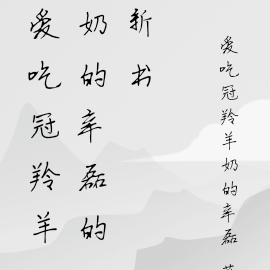 爱吃冠羚羊
奶的辛磊的
新书
爱吃冠羚羊奶的辛磊